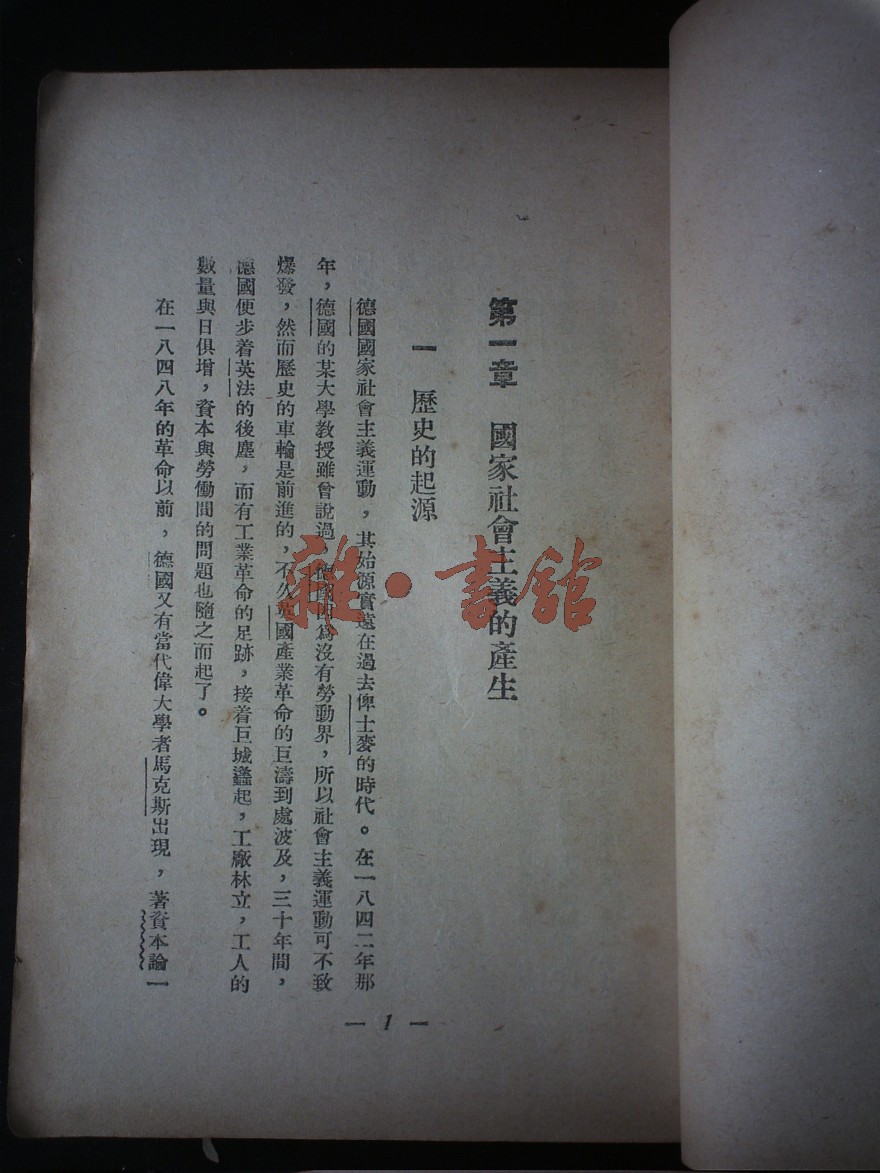 第一章 國家社會主義的產生
一 歷史的起源
德國國家社會主義運動，其始源實遠在過去俾士麥的時代。在一八四二年那
年，德國的某大學教授雖曾說過，德國因爲沒有勞動界，所以社會主義運動可不致
爆發，然而歷史的車輪是前進的，不久英國產業革命的巨濤到處波及，三十年間，
德國便步着英法的後塵，而有工業革命的足跡，接着巨城蠭起，工廠林立，工人的
數量與日俱增，資本與勞働間的問題也隨之而起了。
在一八四八年的革命以前，德國又有當代偉大學者馬克斯出現，著資本論一
— 1 —
雜·書館